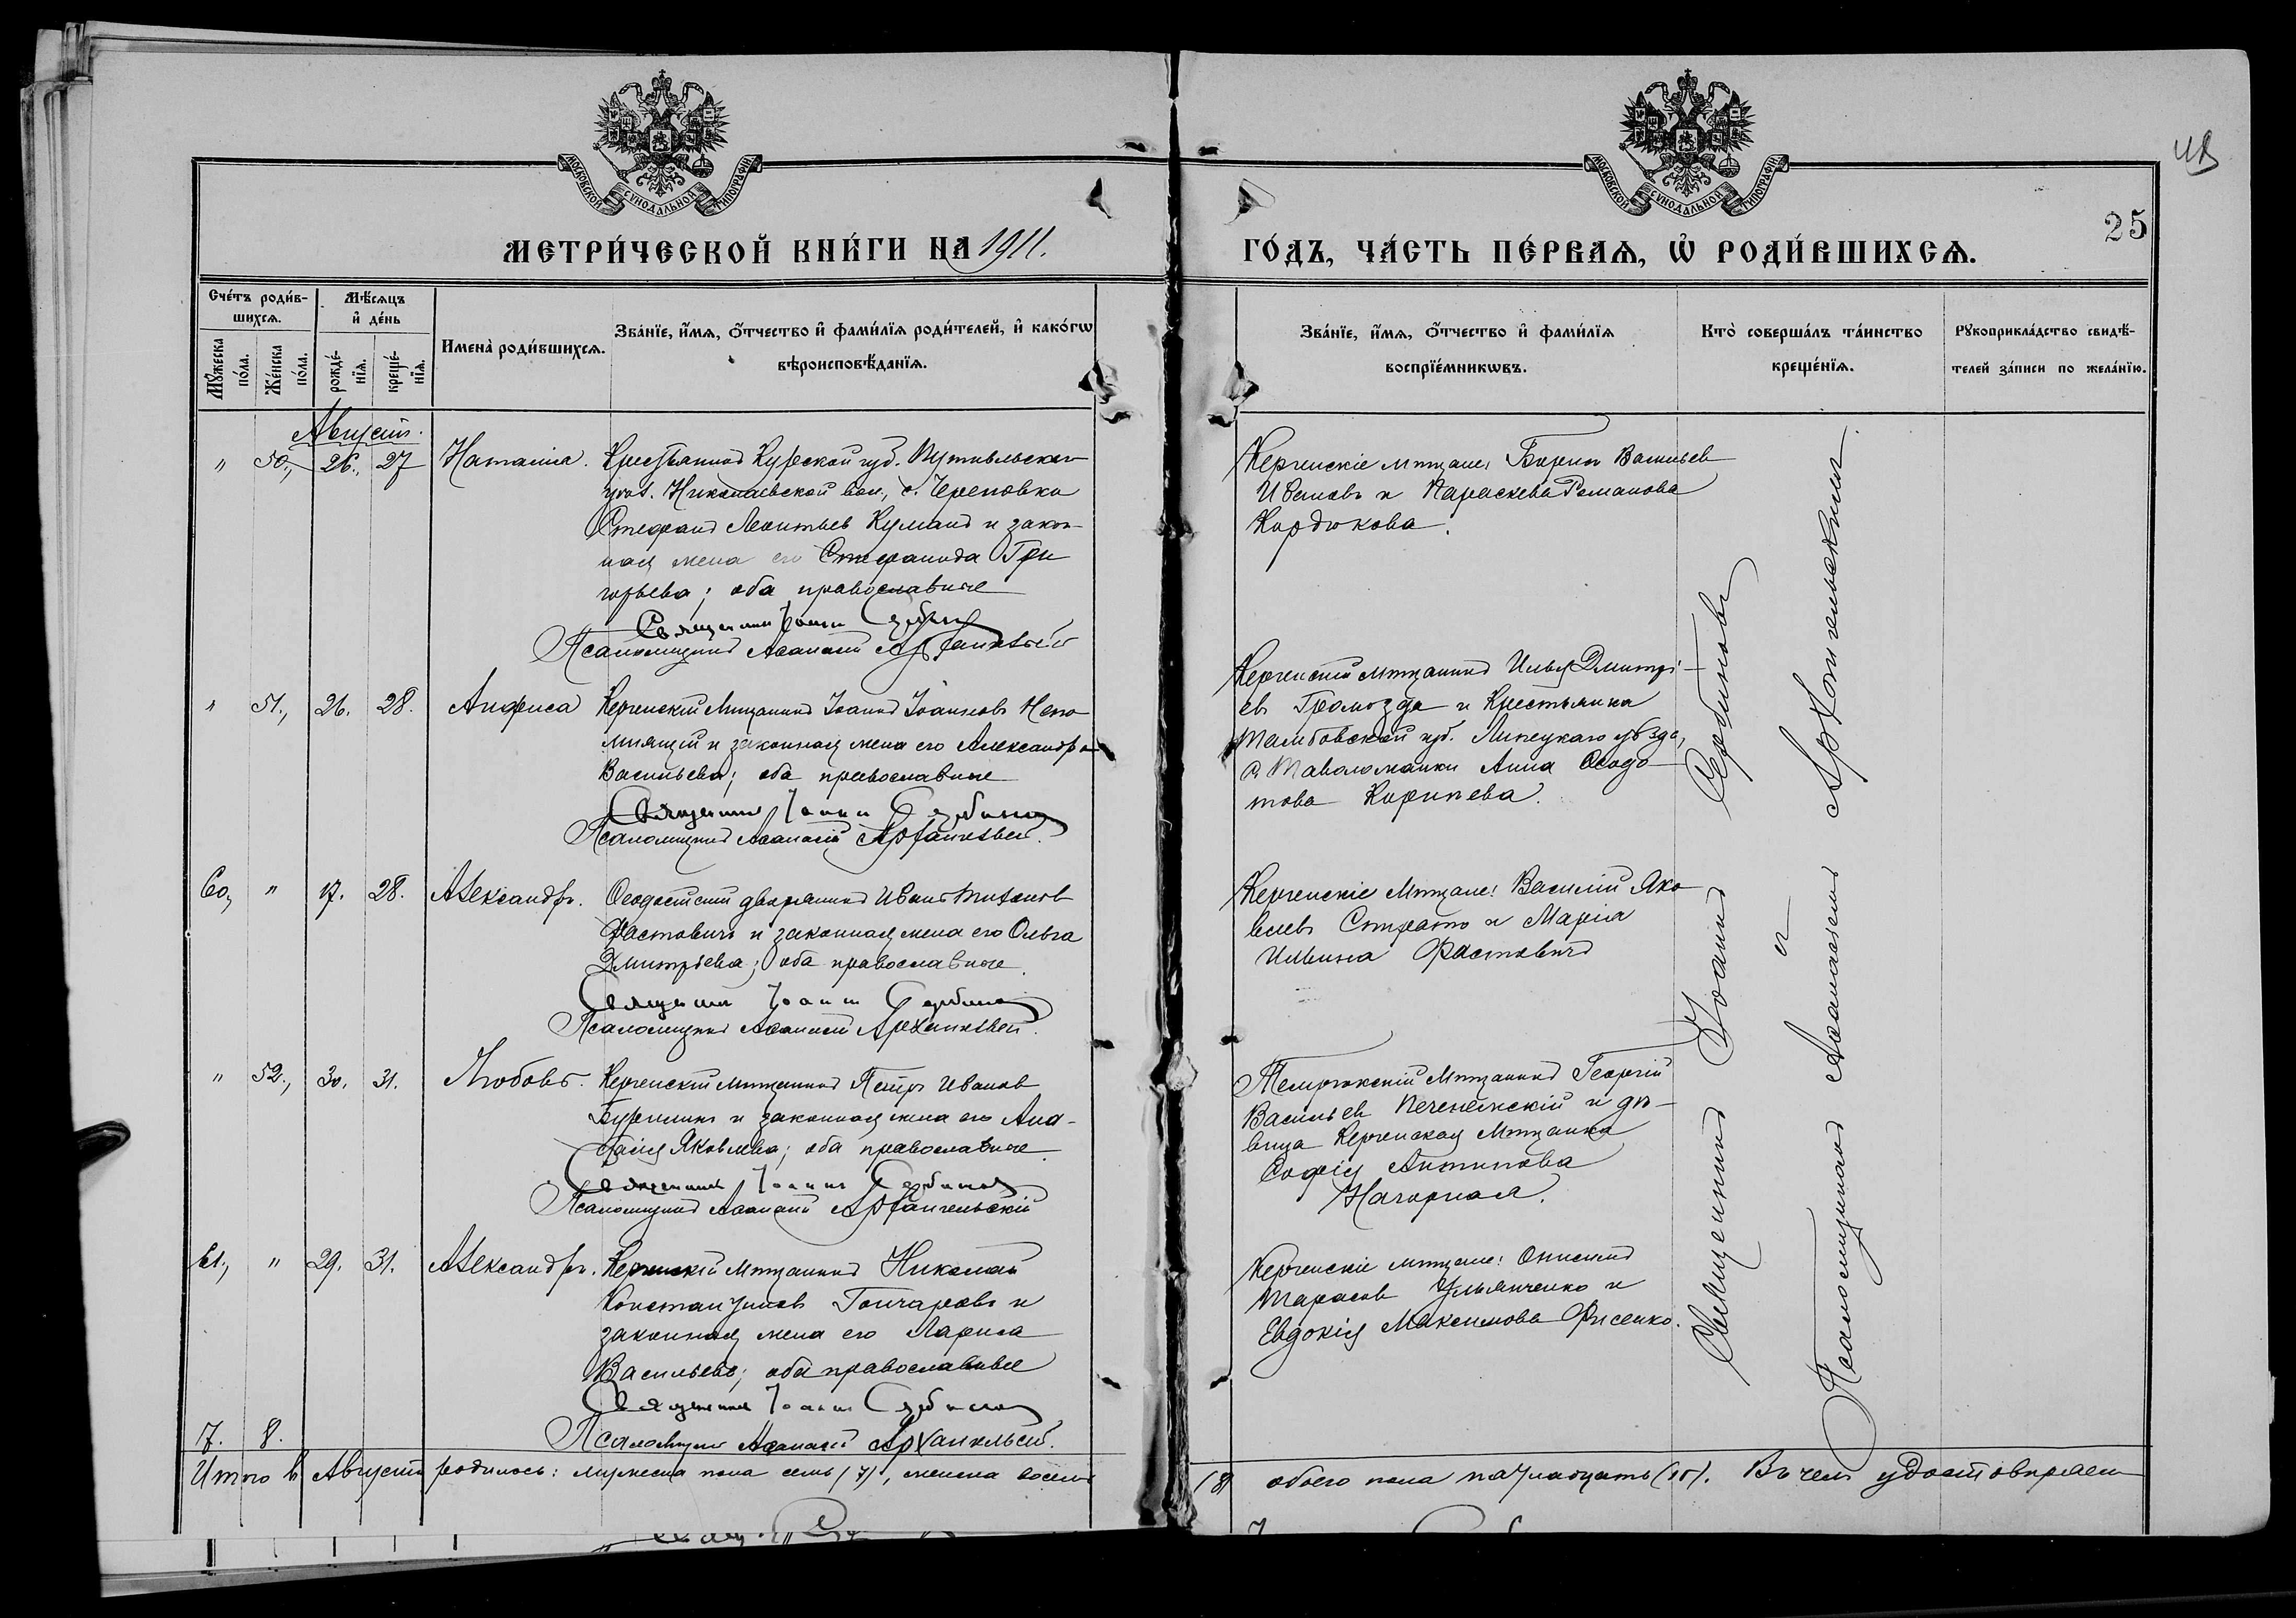 МОСКОВСКОЙ СѴНОДАЛЬНОЙ ТИПОГРАФІИ
МОСКОВСКОЙ СѴНОДАЛЬНОЙ ТИПОГРАФІИ
25
МЕТРИ́ЧЕСКОЙ КНИ́ГИ НА 1911.
ГО́ДЪ, ЧА́СТЬ ПЕ́РВАѦ, Ѡ҆ РОДИ́ВШИХСѦ.
Сче́тъ роди́в-
шихсѧ.
Мѣ́сѧцъ
и҆ де́нь
Мꙋ́жеска
по́ла.
Же́нска
по́ла.
рожде́-
нїѧ.
креще́-
нїѧ.
Имена̀ роди́вшихсѧ.
Зва́нїе, и҆́мѧ, ѻ҆́тчество и҆ фами́лїѧ роди́телей, и҆ како́гѡ
вѣроисповѣ́данїѧ.
Зва́нїе, и҆́мѧ, ѻ҆́тчество и҆ фами́лїѧ
воспрїе́мникѡвъ.
Кто̀ соверша́лъ та́инство
креще́нїѧ.
Рꙋкоприкла́дство свидѣ́-
телей за́писи по жела́нїю.
Августъ.
" 50., 26., 27 Наталія. Крестьянинъ Курской губ. Путивльскаго
уѣз. Николаевской вол., с. Череповки
Стефанъ Леонтьевъ Куманъ и закон-
ная жена его Стефанида Гри
горьева; оба православные
Священникъ Іоаннъ Сербиновъ
Псаломщикъ Аѳанасій Архангельскій
Керченскіе мѣщане: Борисъ Васильевъ
Ивановъ и Параскева Романова
Кордюкова.
" 51., 26. 28. Анфиса Керченскій мѣщанинъ Іоаннъ Іоанновъ Непо
мнящій и законная жена его Александра
Васильева; оба православные
Священникъ Іоаннъ Сербиновъ
Псаломщикъ Аѳанасій Архангельскій.
Керченскій мѣщанинъ Илья Дмитрі-
евъ Громозда и Крестьянка
Тамбовской губ. Липецкаго уѣзда,
с. Таволожанки Анна Ѳедо
това Карпева.
60, " 17. 28. Александръ. Ѳеодосійскій дворянинъ Иванъ Тихоновъ
Фастовичъ и законная жена его Ольга
Дмитріева; оба православные.
Священникъ Іоаннъ Сербиновъ
Псаломщикъ Аѳанасій Архангельскій.
Керченскіе мѣщане: Василій Яко
влевъ Страто и Марія
Ильина Фастовичъ
" 52., 30. 31. Любовь. Керченскій мѣщанинъ Петръ Ивановъ
Бурлинъ и законная жена его Ана-
стасія Яковлева; оба православные.
Священникъ Іоаннъ Сербиновъ
Псаломщикъ Аѳанасій Архангельскій
Темрюкскій мѣщанинъ Георгій
Васильевъ Печенежскій и дѣ-
вица Керченская мѣщанка
Софія Антипова
Нагорная.
61., " 29. 31. Александръ. Керченскій мѣщанинъ Николай
Константиновъ Гончаровъ и
законная жена его Лариса
Васильева; оба православные
Священникъ Іоаннъ Сербиновъ
Псаломщикъ Аѳанасій Архангельскій.
Керченскіе мѣщане: Онисимъ
Тарасовъ Ульянченко и
Евдокія Максимова Фисенко.
Священникъ Іоаннъ Сербиновъ
и
Псаломщикъ Аѳанасій Архангельскій.
7. 8.
Итого въ Августѣ родилось: мужеска пола семь (7), женска восемь
(8) обоего пола пятнадцать (15). Въ чемъ удостовѣряемъ